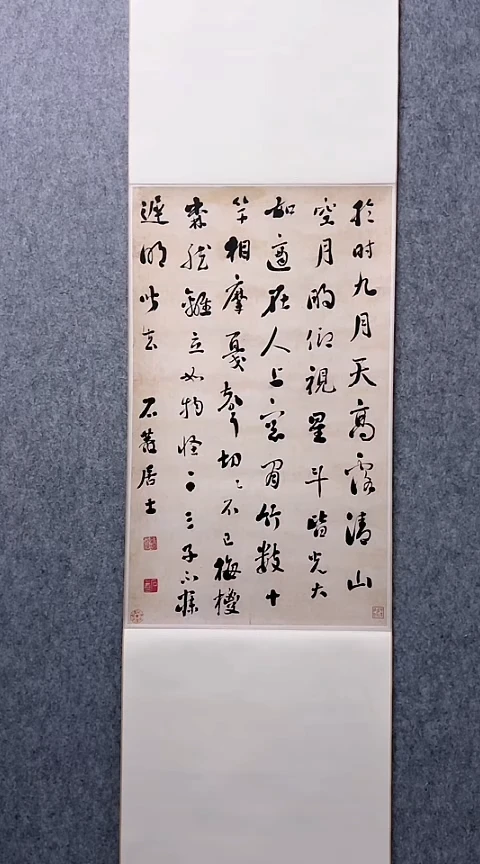 於時九月天高露清山
空月明仰視星斗皆光大
如適在人上窓間竹數十
竿相摩戛聲切〻不已梅椶
森然離立如物怪二三子不寐
遲明皆去 石菴居士